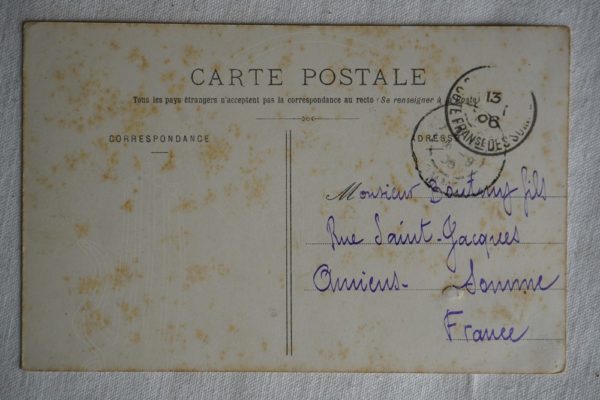 CARTE POSTALE
Tous les pays étrangers n'acceptent pas la correspondance au recto (Se renseigner à la Poste)
CORRESPONDANCE
ADRESSE
13
06
COTE FRANSE DES SOM
Monsieur fils
Rue Saint-Jacques
Amiens- Somme
France